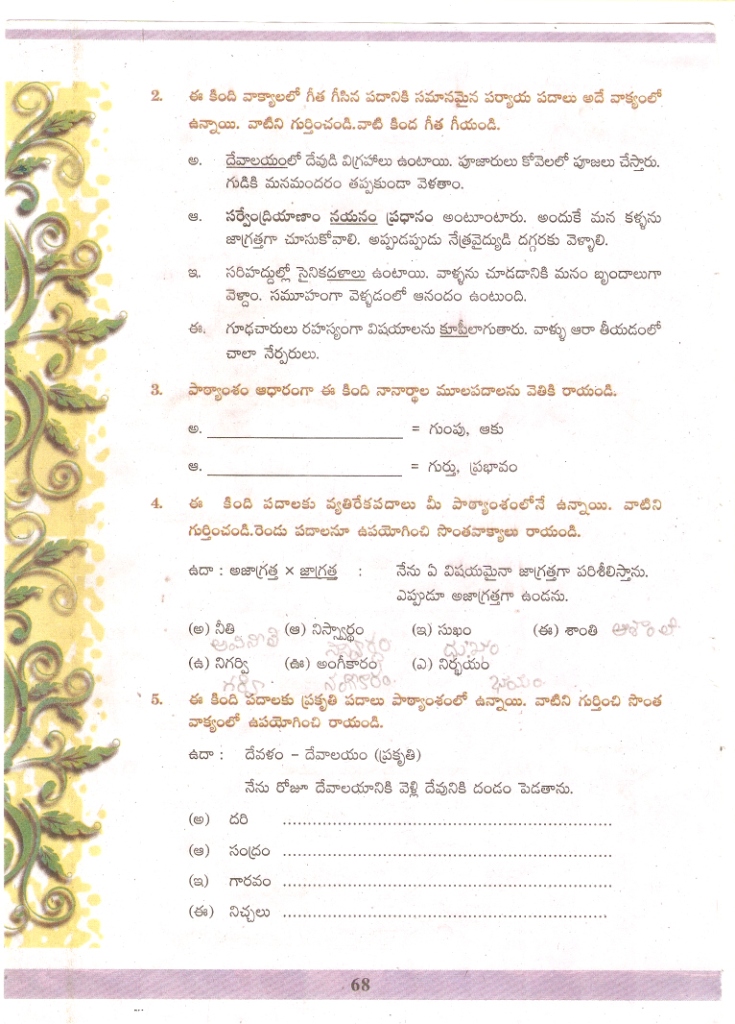 2. ఈ కింది వాక్యాలలో గీత గీసిన పదానికి సమానమైన పర్యాయ పదాలు అదే వాక్యంలో
ఉన్నాయి. వాటిని గుర్తించండి.వాటి కింద గీత గీయండి.
అ. దేవాలయంలో దేవుడి విగ్రహాలు ఉంటాయి. పూజారులు కోవెలలో పూజలు చేస్తారు.
గుడికి మనమందరం తప్పకుండా వెళతాం.
ఆ. సర్వేంద్రియాణాం నయనం ప్రధానం అంటూంటారు. అందుకే మన కళ్ళను
జాగ్రత్తగా చూసుకోవాలి. అప్పుడప్పుడు నేత్రవైద్యుడి దగ్గరకు వెళ్ళాలి.
ఇ. సరిహద్దుల్లో సైనికదళాలు ఉంటాయి. వాళ్ళను చూడడానికి మనం బృందాలుగా
వెళ్దాం. సమూహంగా వెళ్ళడంలో ఆనందం ఉంటుంది.
ఈ. గూఢచారులు రహస్యంగా విషయాలను కూపీలాగుతారు. వాళ్ళు ఆరా తీయడంలో
చాలా నేర్పరులు.
3. పాఠ్యాంశం ఆధారంగా ఈ కింది నానార్థాల మూలపదాలను వెతికి రాయండి.
అ. = గుంపు, ఆకు
ఆ. = గుర్తు, ప్రభావం
4. ఈ కింది పదాలకు వ్యతిరేకపదాలు మీ పాఠ్యాంశంలోనే ఉన్నాయి. వాటిని
గుర్తించండి.రెండు పదాలనూ ఉపయోగించి సొంతవాక్యాలు రాయండి.
ఉదా : అజాగ్రత్త × జాగ్రత్త : నేను ఏ విషయమైనా జాగ్రత్తగా పరిశీలిస్తాను.
ఎప్పుడూ అజాగ్రత్తగా ఉండను.
(అ) నీతి (ఆ) నిస్స్వార్థం (ఇ) సుఖం (ఈ) శాంతి అశాంతి
అవినీతి స్వార్థం దుఃఖం
(ఉ) నిగర్వి (ఊ) అంగీకారం (ఎ) నిర్భయం
భయం
5. ఈ కింది పదాలకు ప్రకృతి పదాలు పాఠ్యాంశంలో ఉన్నాయి. వాటిని గుర్తించి సొంత
వాక్యంలో ఉపయోగించి రాయండి.
ఉదా : దేవళం – దేవాలయం (ప్రకృతి)
నేను రోజూ దేవాలయానికి వెళ్లి దేవునికి దండం పెడతాను.
(అ) దరి ........................................................
(ఆ) సంద్రం ........................................................
(ఇ) గారవం ........................................................
(ఈ) నిచ్చలు ........................................................
68